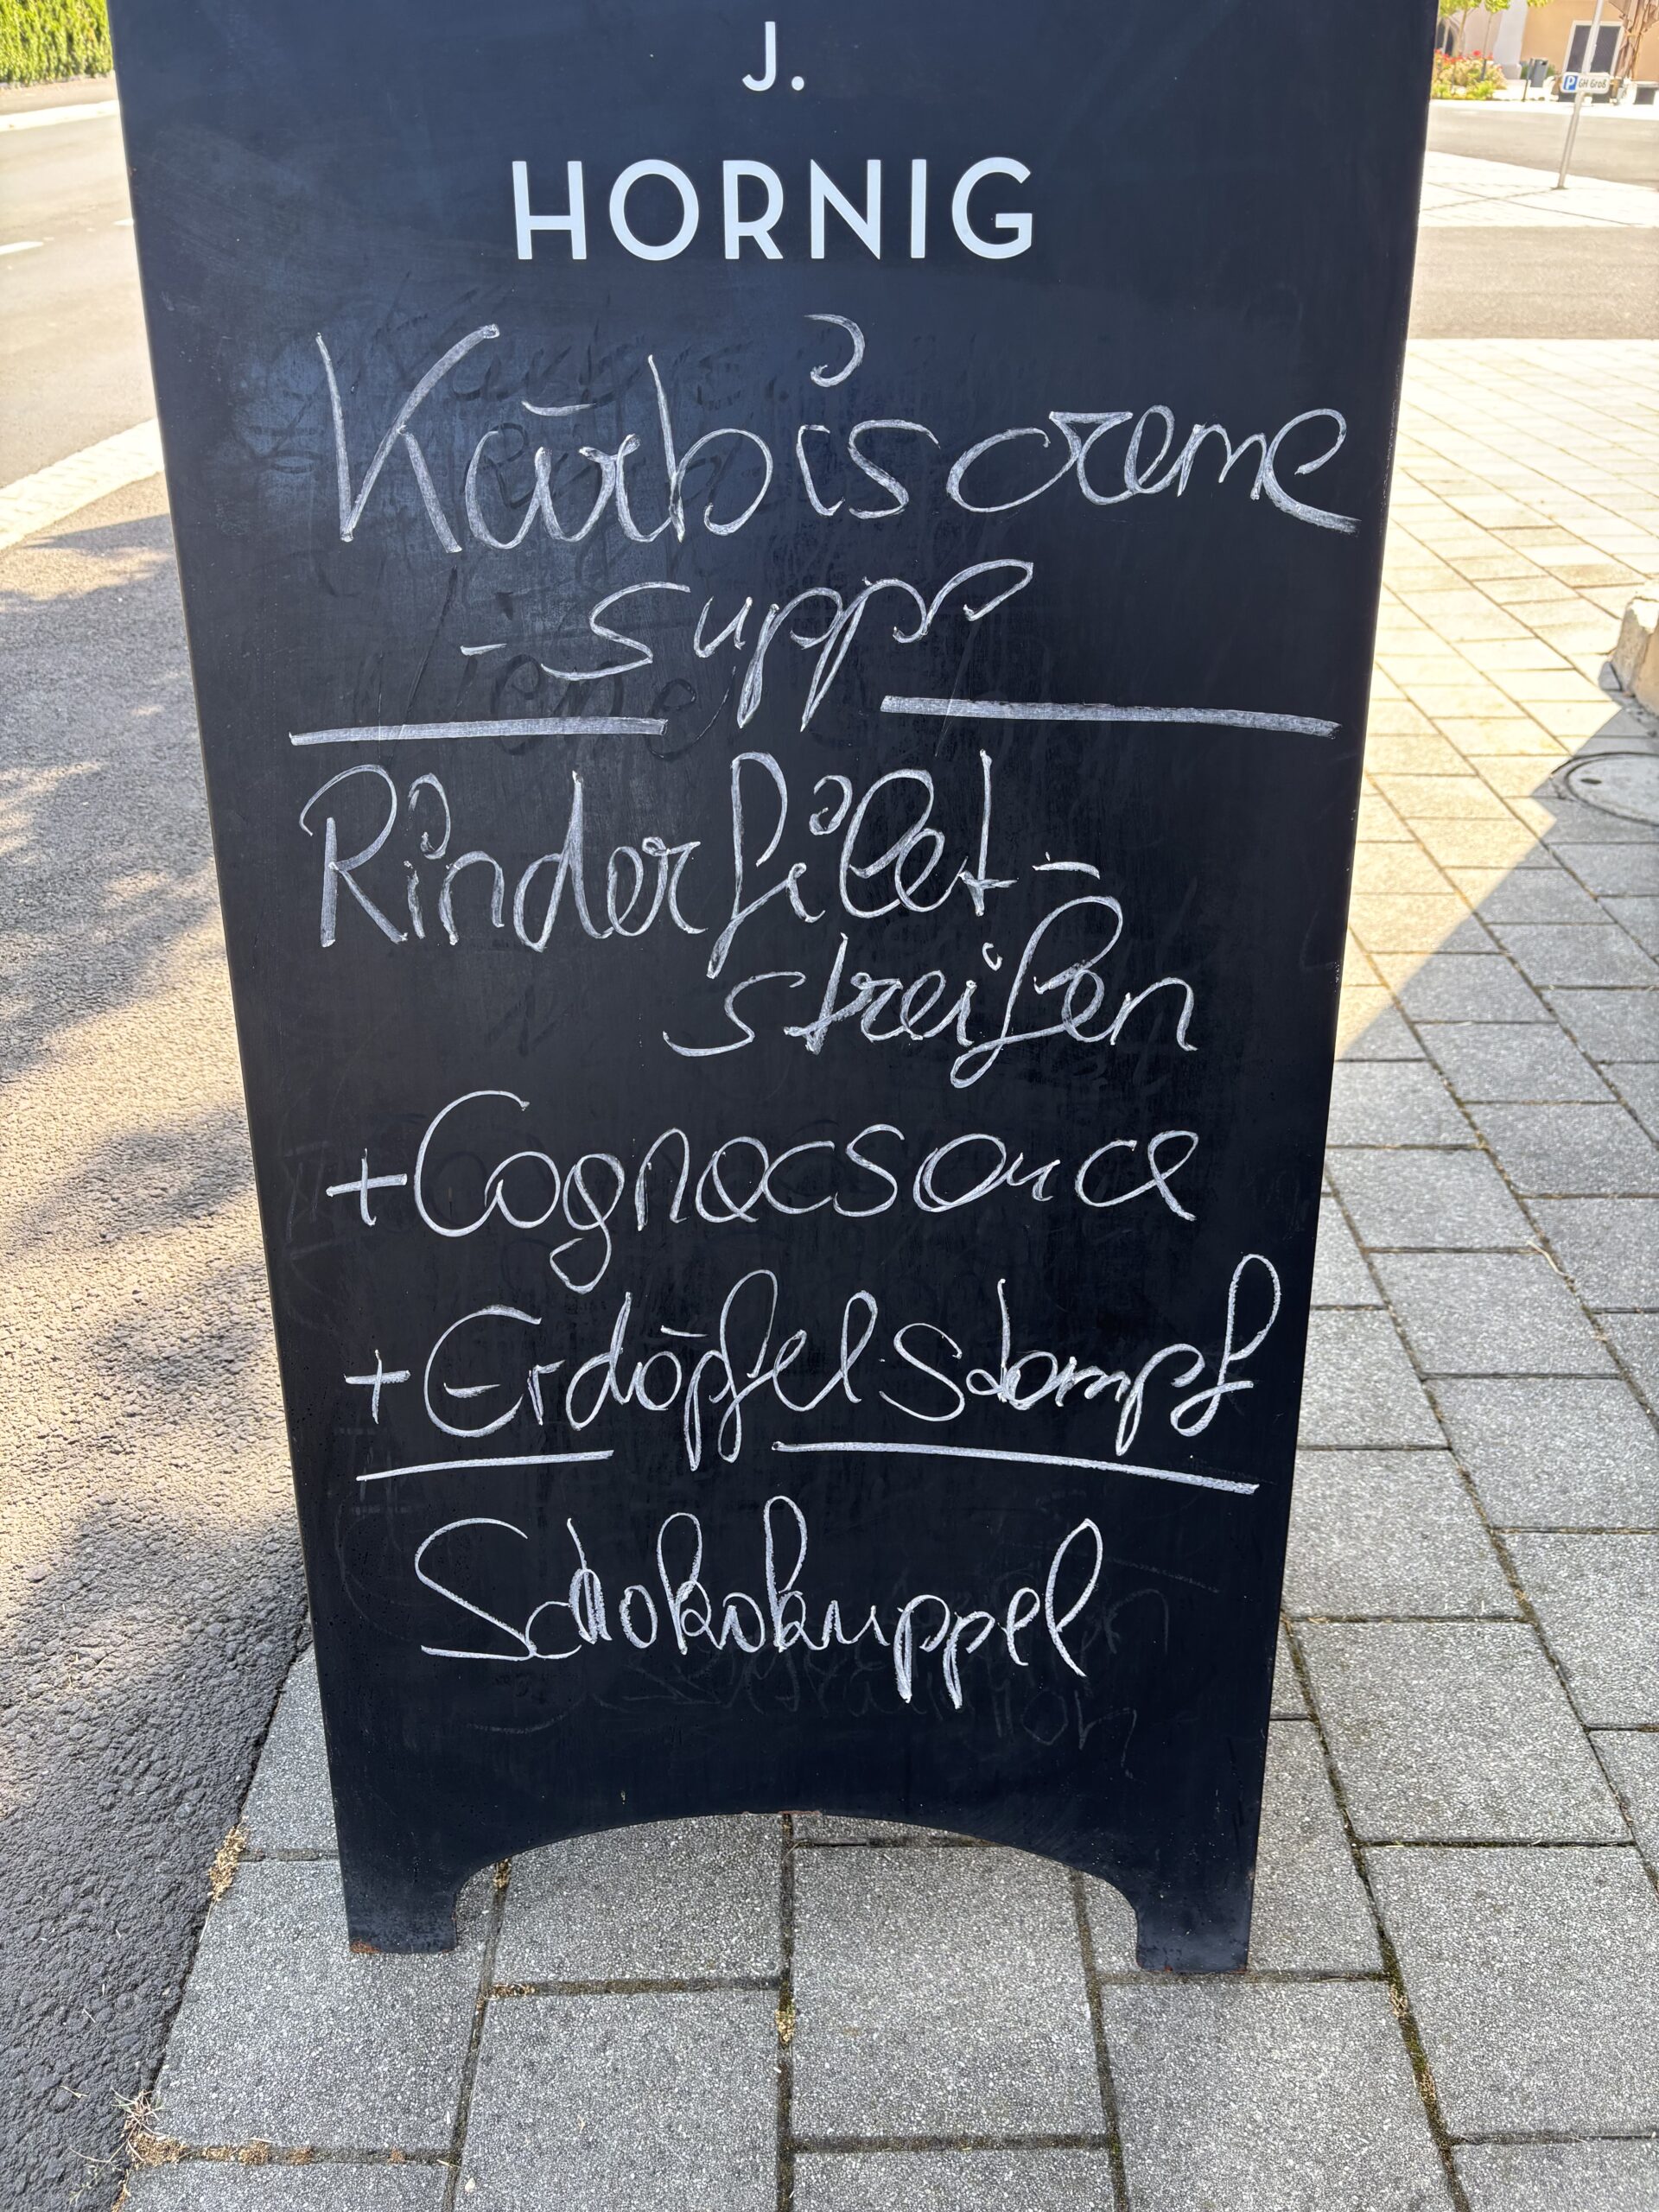 J.
HORNIG
Kürbiscreme
-suppe
Rinderfilet-
streifen
+Cognacsauce
+Erdöpfelstampf
Schokokuppel
P GH Groß